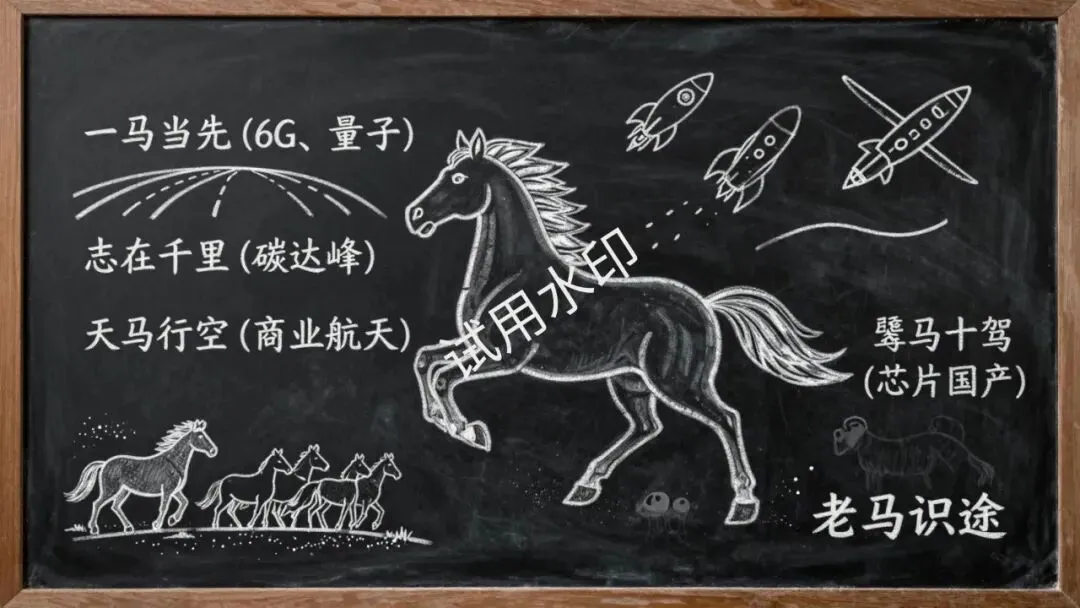 一马当先 (6G、量子)
志在千里 (碳达峰)
天马行空 (商业航天)
试用水印
马十驾
(芯片国产)
老马识途